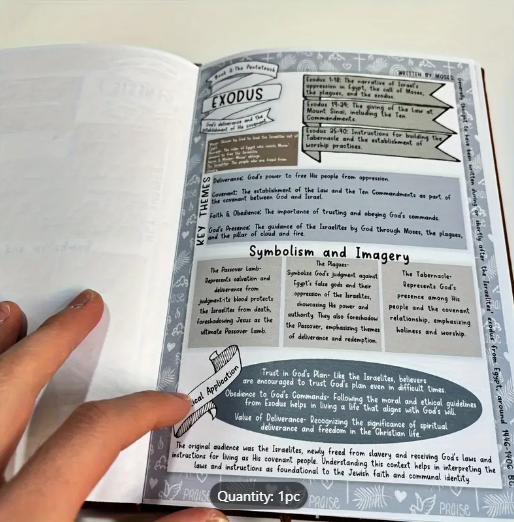 Book 2: The Pentateuch
EXODUS
God's deliverance and the
establishment of His
WRITTEN BY MOSES
Exodus 1-18: The narrative of Israel's
oppression in Egypt, the call of Moses,
the plagues, and the exodus.
Exodus 19-24: The giving of the Law at
Mount Sinai, including the Ten
Commandments.
Exodus 25-40: Instructions for building the
Tabernacle and the establishment of
worship practices.
KEY THEMES
Deliverance: God's power to free His people from oppression.
Covenant: The establishment of the Law and the Ten Commandments as part of
the covenant between God and Israel.
Faith & Obedience: The importance of trusting and obeying God's commands.
God's Presence: The guidance of the Israelites by God through Moses, the plagues,
and the pillar of cloud and fire.
Symbolism and Imagery
The Passover Lamb-
Represents salvation and
deliverance from
judgment;its blood protects
the Israelites from death,
foreshadowing Jesus as the
ultimate Passover Lamb.
The Plagues-
Symbolize God's judgment against
Egypt's false gods and their
oppression of the Israelites,
showcasing His power and
authority. They also foreshadow
the Passover, emphasizing themes
of deliverance and redemption.
The Tabernacle-
Represents God's
presence among His
people and the covenant
relationship, emphasizing
holiness and worship.
Application
Trust in God's Plan- Like the Israelites, believers
are encouraged to trust God's plan even in difficult times.
Obedience to God's Commands- Following the moral and ethical guidelines
from Exodus helps in living a life that aligns with God's will.
Value of Deliverance- Recognizing the significance of spiritual
deliverance and freedom in the Christian life.
The original audience was the Israelites, newly freed from slavery and receiving God's laws and
instructions for living as His covenant people. Understanding this context helps in interpreting the
laws and instructions as foundational to the Jewish faith and communal identity.
PRAISE
PRAISE
Quantity: 1pc